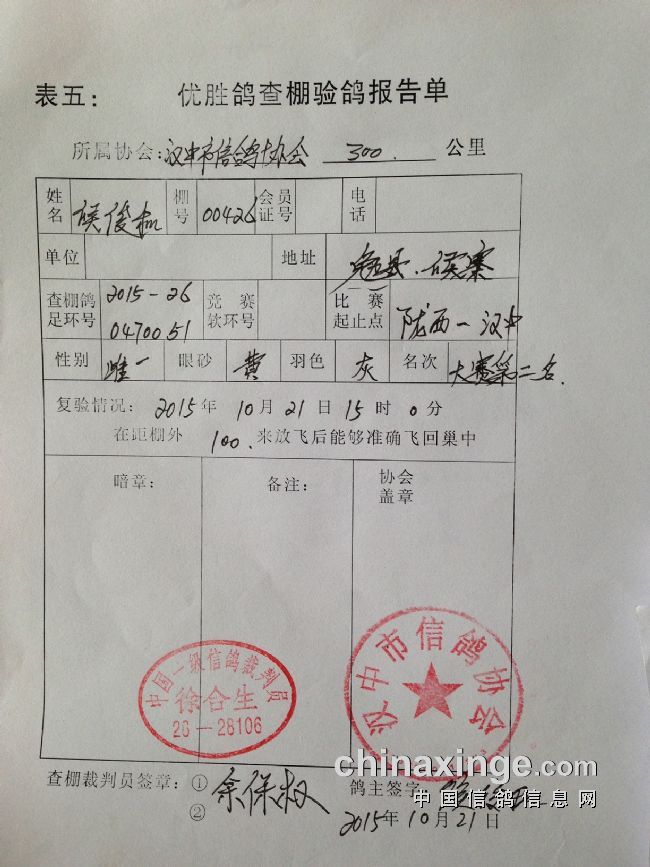 表五： 优胜鸽查棚验鸽报告单
所属协会：汉中市信鸽协会 300. 公里
姓名 侯俊 棚号 00426 会员证号 电话
单位 地址 勉县.侯寨
查棚鸽足环号 2015-26 0470051 竞赛软环号 比赛起止点 陇西－汉中
性别 雌 眼砂 黄 羽色 灰 名次 大赛第二名.
复验情况：2015年10月21日15时0分
在距棚外 100. 来放飞后能够准确飞回巢中
暗章： 备注： 协会盖章
中国一级信鸽裁判员
徐合生
26－28106
汉中市信鸽协会
查棚裁判员签章：① 余保权 鸽主签字
②
2015年10月21日
chinaxinge.com
中国信鸽信息网